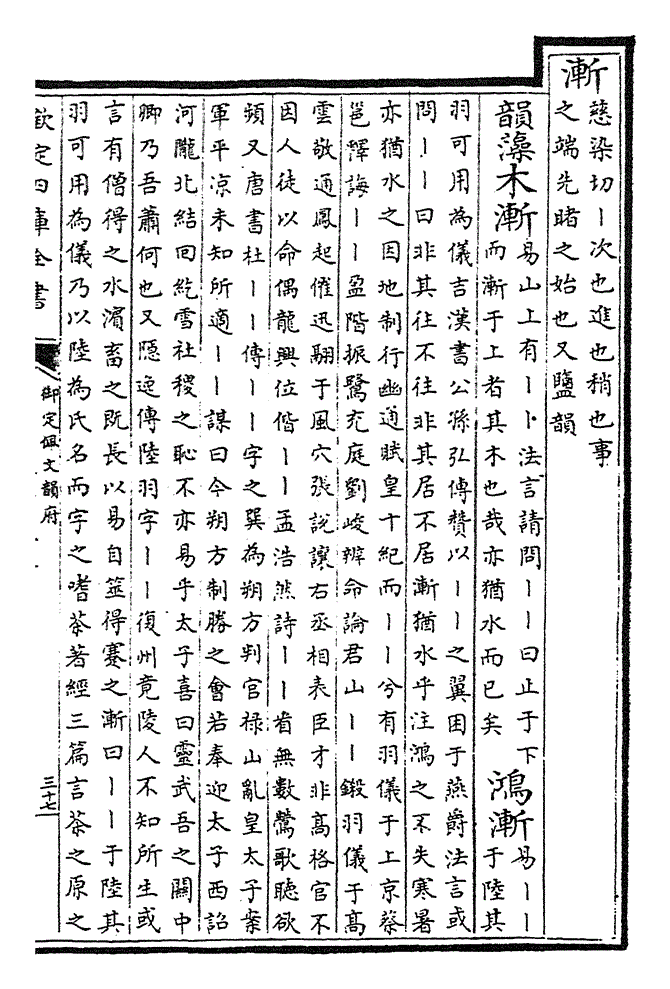 漸 慈染切丨次也進也稍也事
之端先睹之始也又鹽韻
韻藻木漸 易山上有丨卜法言請問丨丨曰止于下
而漸于上者其木也哉亦猶水而已矣
鴻漸 易丨丨
于陸其
羽可用為儀吉漢書公孫弘傳贊以丨丨之翼困于燕爵法言或
問丨丨曰非其往不往非其居不居漸猶水乎注鴻之不失寒暑
亦猶水之因地制行幽通賦皇十紀而丨丨兮有羽儀于上京蔡
邕釋誨丨丨盈階振鷺充庭劉峻辨命論君山丨丨鍛羽儀于高
雲敬通鳳起催迅翮于風穴張說讓右丞相表臣才非高格官不
因人徒以命偶龍興位偕丨丨孟浩然詩丨丨看無數鶯歌聽欲
頻又唐書杜丨丨傳丨丨字之巽為朔方判官祿山亂皇太子案
軍平凉未知所適丨丨謀曰今朔方制勝之會若奉迎太子西詔
河隴北結回紇雪社稷之恥不亦易乎太子喜曰靈武吾之關中
卿乃吾蕭何也又隱逸傳陸羽字丨丨復州竟陵人不知所生或
言有僧得之水濵畜之既長以易自筮得蹇之漸曰丨丨于陸其
羽可用為儀乃以陸為氏名而字之嗜茶著經三篇言茶之原之
欽定四庫全書
御定佩文韻府
三十七